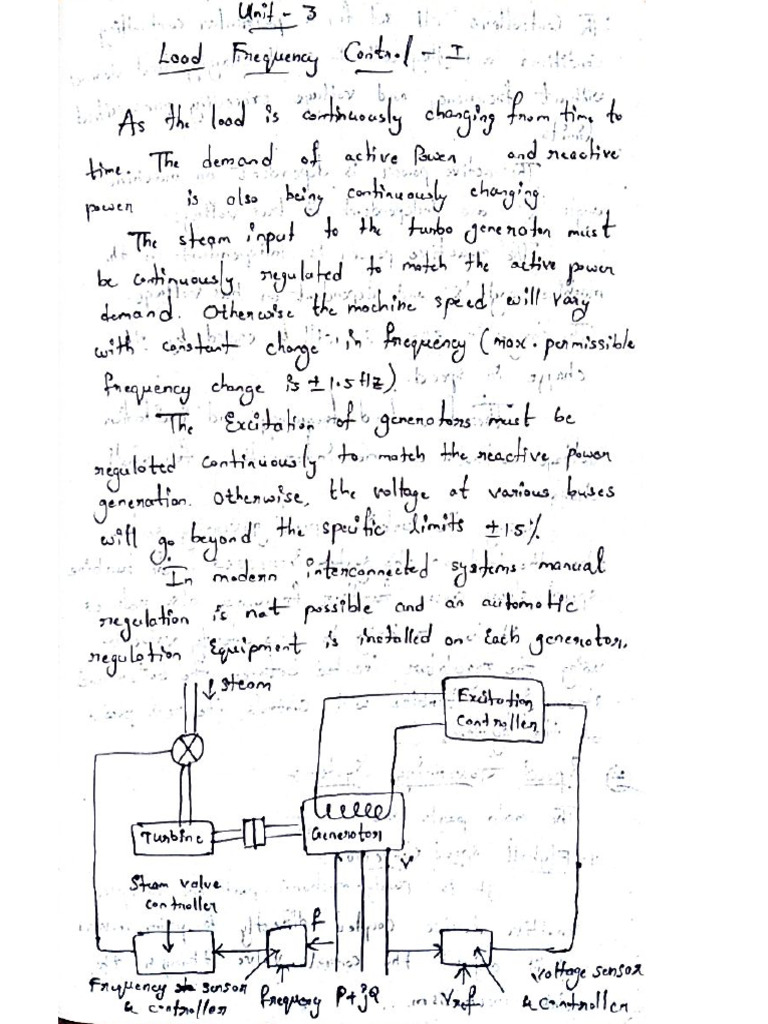 Unit - 3
Load Frequency Control - I
As the load is continuously changing from time to
time. The demand of active Power, and reactive
power is also being continuously changing.
The steam input to the turbo generator must
be continuously regulated to match the active power
demand. Otherwise the machine speed will vary
with constant change in frequency (max. permissible
frequency change is ±1.5Hz)
The Excitation of generators must be
regulated continuously to match the reactive power
generation. Otherwise, the voltage at various buses
will go beyond the specific limits ±15%.
In modern interconnected systems manual
regulation is not possible and an automatic
regulation Equipment is installed on Each generator.
steam
Excitation
Controller
Turbine
Generator
V
Steam valve
controller
f
Frequency sensor
& controller
frequency
P+jQ
Vref
Voltage sensor
& controller